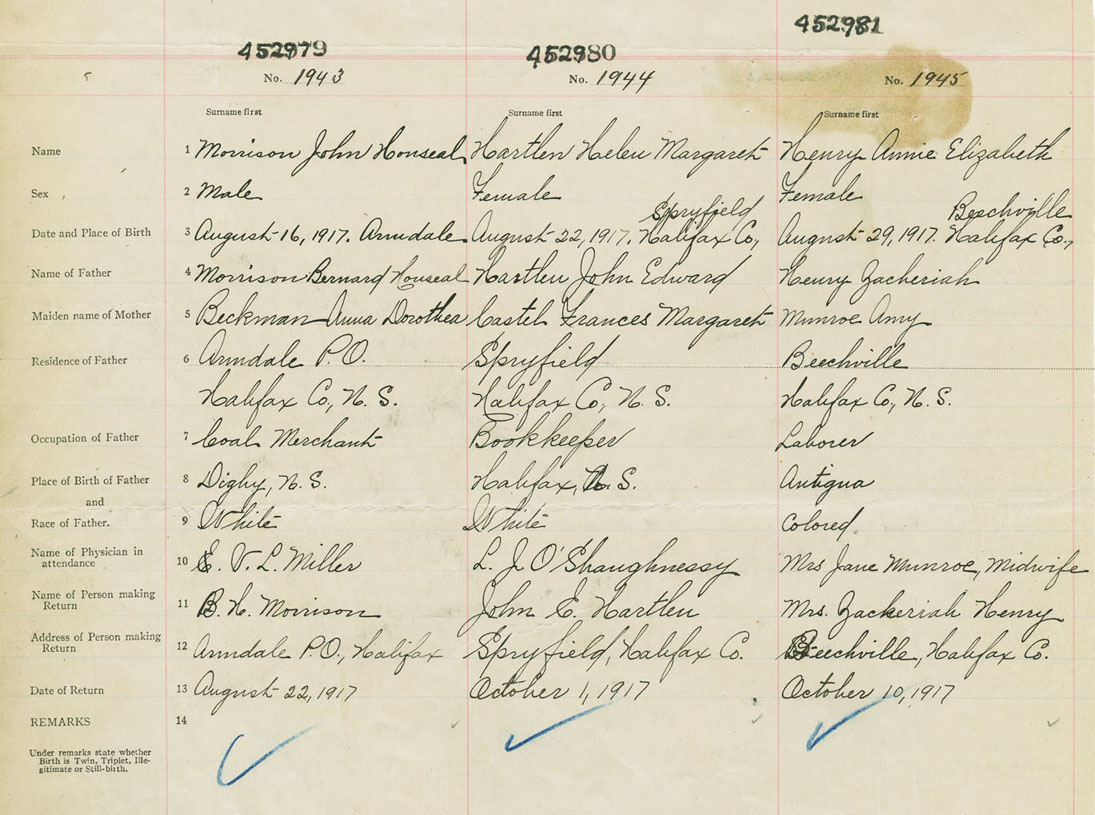 452979 452980 452981
No. 1943 No. 1944 No. 1945
Surname first Surname first Surname first
Name 1 Morrison John Houseal Hartlen Helen Margaret Henry Annie Elizabeth
Sex 2 Male Female Female
Spryfield Beechville
Date and Place of Birth 3 August 16, 1917. Armdale August 22, 1917. Halifax Co., August 29, 1917. Halifax Co.,
Name of Father 4 Morrison Bernard Houseal Hartlen John Edward Henry Zacheriah
Maiden name of Mother 5 Beckman Anna Dorothea Castel Frances Margaret Munroe Amy
Residence of Father 6 Armdale P.O. Spryfield Beechville
Halifax Co., N. S. Halifax Co., N. S. Halifax Co., N. S.
Occupation of Father 7 Coal Merchant Bookkeeper Laborer
Place of Birth of Father 8 Digby, N. S. Halifax, N. S. Antigua
and
Race of Father. 9 White White Colored
Name of Physician in
attendance 10 E. V. L. Miller L. J. O'Shaughnessy Mrs Jane Munroe, Midwife
Name of Person making
Return 11 B. H. Morrison John E. Hartlen Mrs. Zackeriah Henry
Address of Person making
Return 12 Armdale P.O., Halifax Spryfield, Halifax Co. Beechville, Halifax Co.
Date of Return 13 August 22, 1917 October 1, 1917 October 10, 1917
REMARKS 14
Under remarks state whether
Birth is Twin, Triplet, Ille-
gitimate or Still-birth.